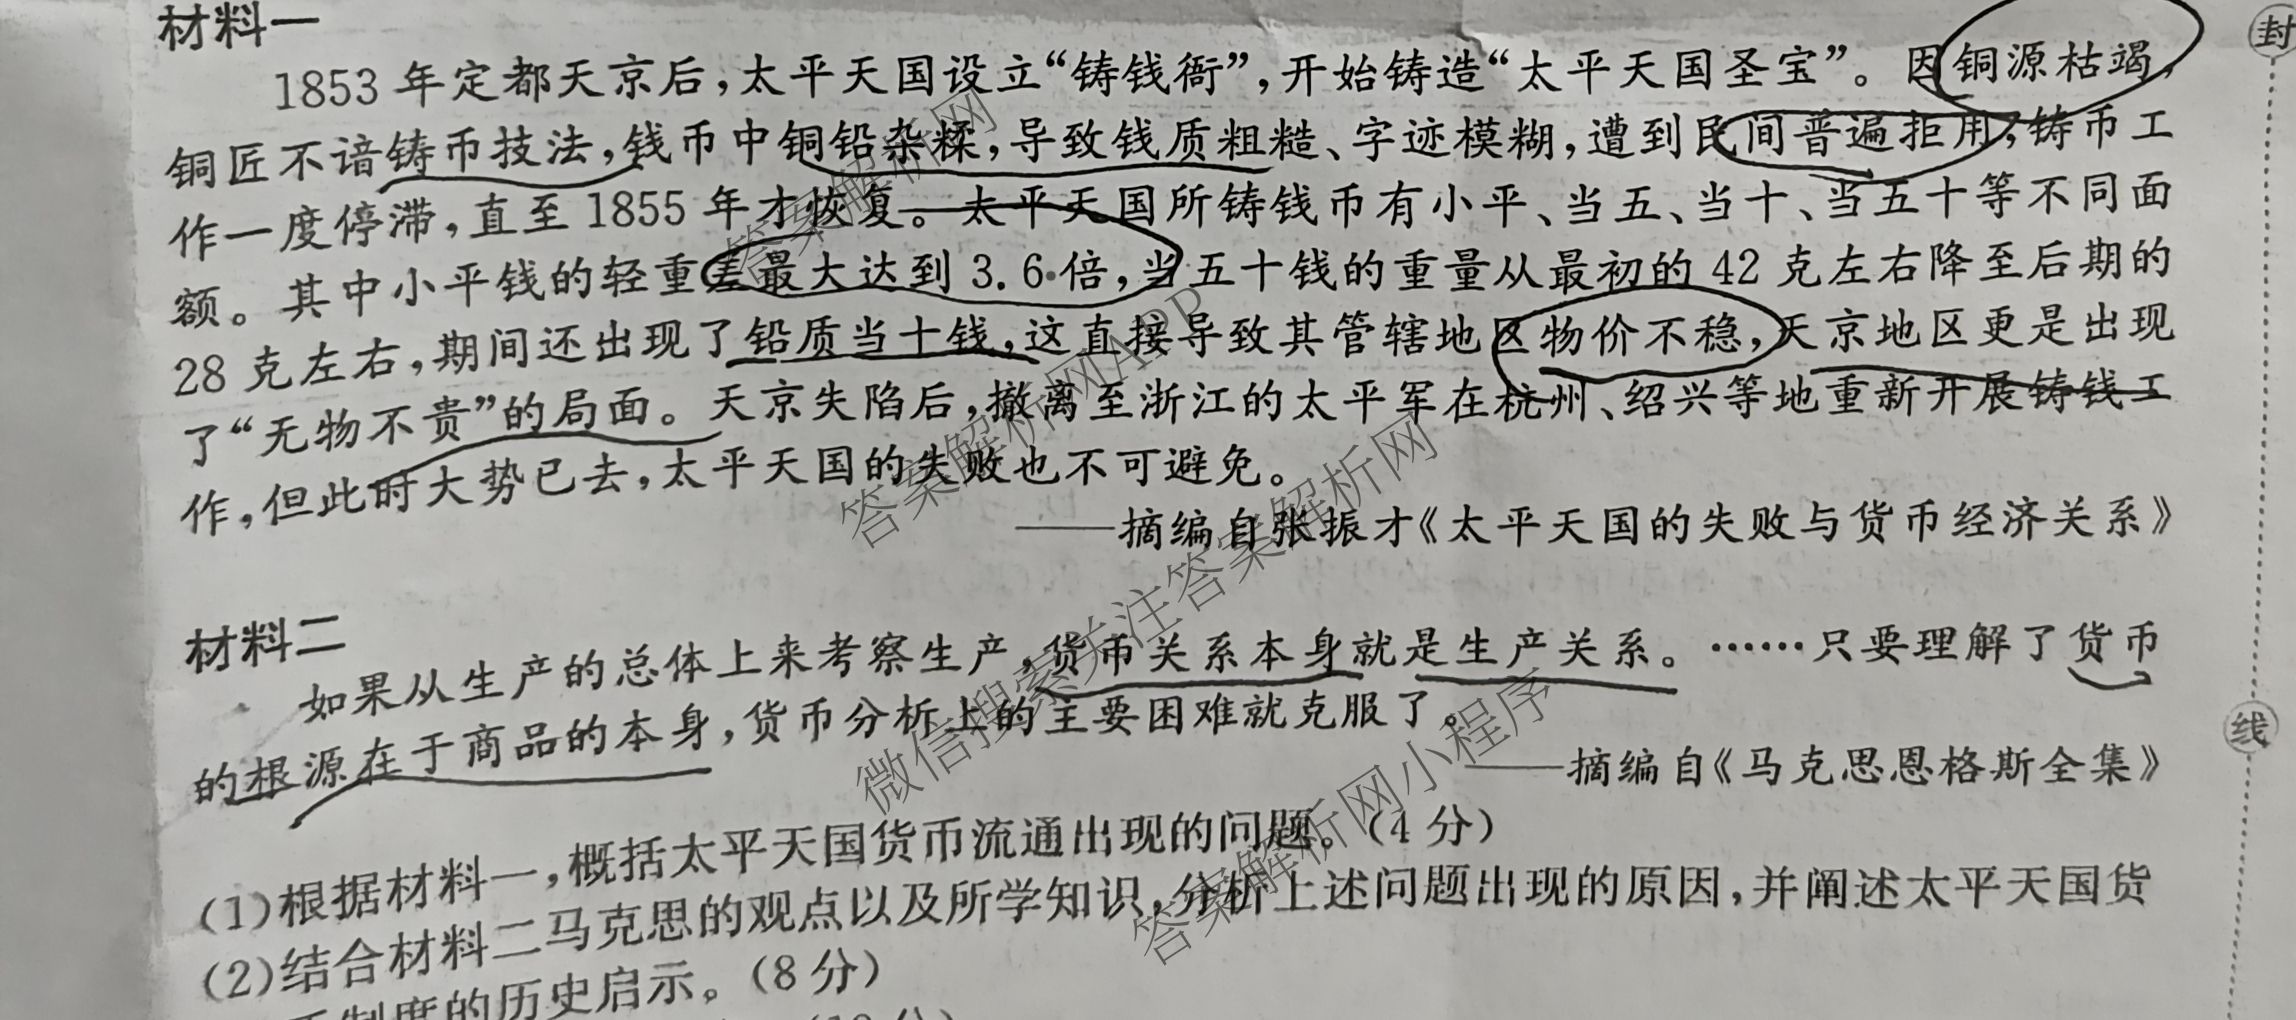 材料一
1853年定都天京后,太平天国设立“铸钱衙”,开始铸造“太平天国圣宝”。因铜源枯竭,
铜匠不谙铸币技法,钱币中铜铅杂糅,导致钱质粗糙、字迹模糊,遭到民间普遍拒用,铸币工
作一度停滞,直至1855年才恢复。太平天国所铸钱币有小平、当五、当十、当五十等不同面
额。其中小平钱的轻重差最大达到3.6倍,当五十钱的重量从最初的42克左右降至后期的
28克左右,期间还出现了铅质当十钱,这直接导致其管辖地区物价不稳,天京地区更是出现
了“无物不贵”的局面。天京失陷后,撤离至浙江的太平军在杭州、绍兴等地重新开展铸钱工
作,但此时大势已去,太平天国的失败也不可避免。
——摘编自张振才《太平天国的失败与货币经济关系》
材料二
如果从生产的总体上来考察生产,货币关系本身就是生产关系。……只要理解了货币
的根源在于商品的本身,货币分析上的主要困难就克服了。
——摘编自《马克思恩格斯全集》
(1)根据材料一,概括太平天国货币流通出现的问题。(4分)
(2)结合材料二马克思的观点以及所学知识,分析上述问题出现的原因,并阐述太平天国货
币制度的历史启示。(8分)
封
线
答案解析网
答案解析网APP
微信搜索关注答案解析网
答案解析网小程序